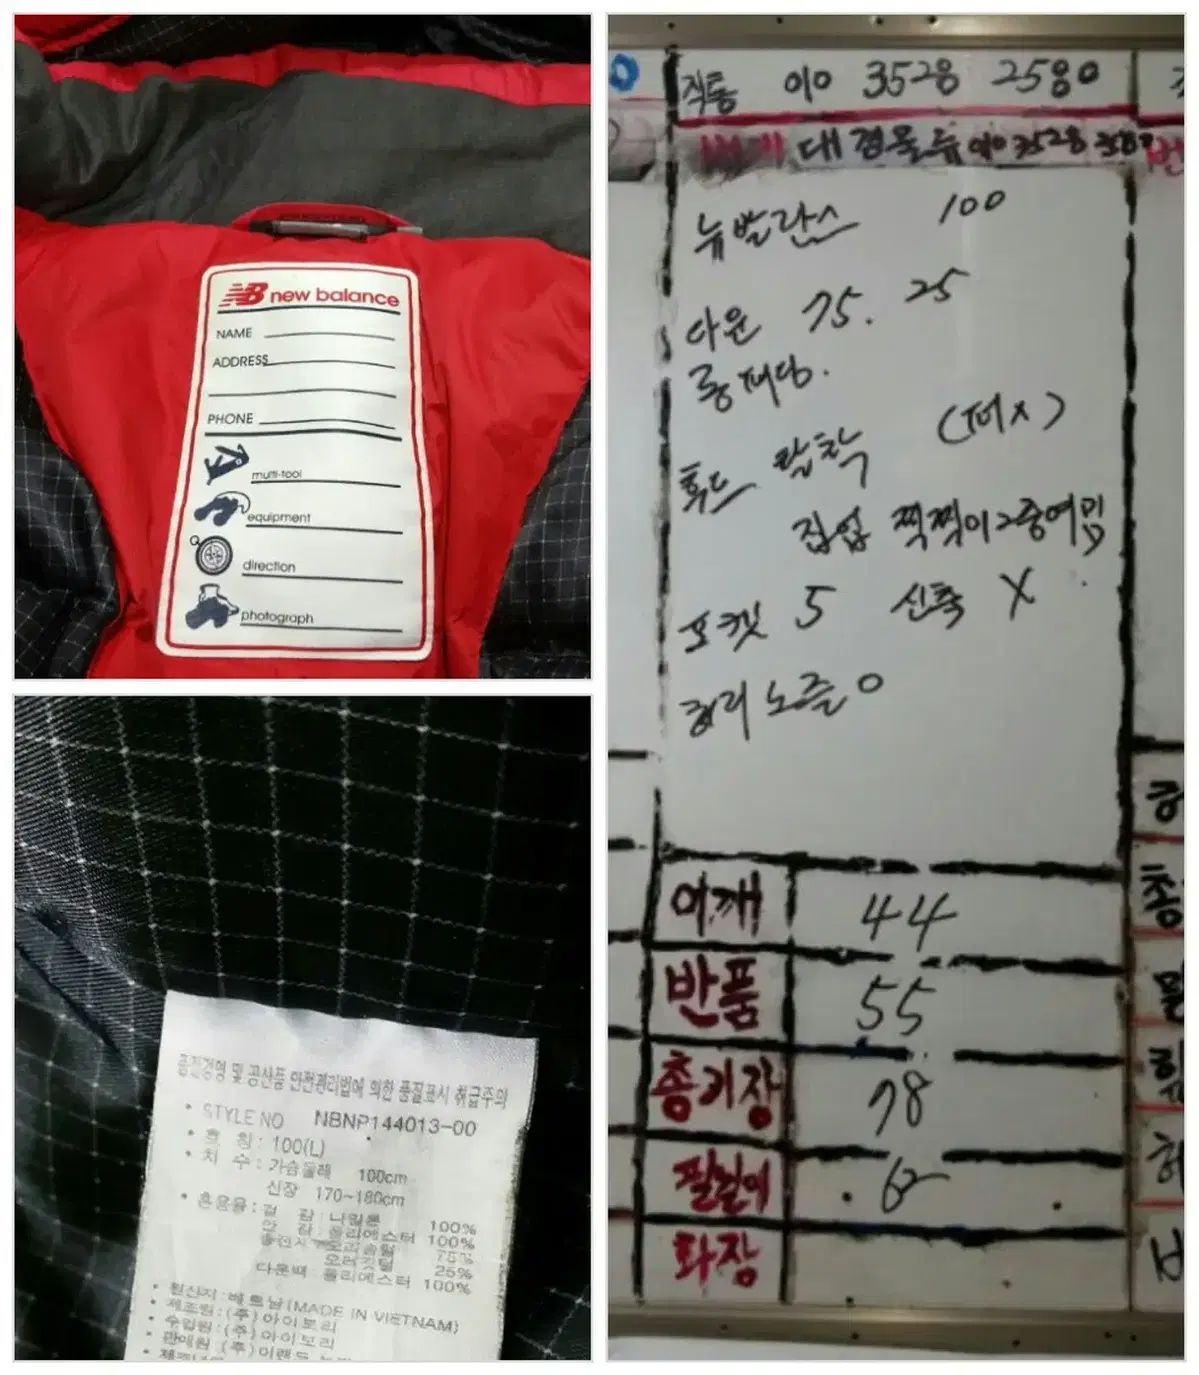 NB new balance
NAME
ADDRESS
PHONE
multi-tool
equipment
direction
photograph
품질경영 및 공산품 안전관리법에 의한 품질표시 취급주의
• STYLE NO NBNP144013-00
• 호 칭 : 100(L)
• 치 수 : 가슴둘레 100cm
신장 170~180cm
• 혼용율 : 겉 감 : 나일론 100%
안 감 : 폴리에스터 100%
충전재 : 오리솜털 75%
오리깃털 25%
다운백 : 폴리에스터 100%
• 원산지 : 베트남(MADE IN VIETNAM)
• 제조원 : (주)아이토리
• 수입원 : (주)아이토리
• 판매원 : (주)이랜드
직통 010 3528 2580
번개 대경물류 010 3528 2580
뉴발란스 100
다운 75. 25
롱패딩.
후드 탈착 (퍼x)
집업 찍찍이 2중여밈
포켓 5 신축 X
허리 노즐 0
어깨 44
반품 55
총기장 78
팔길이 62
화장